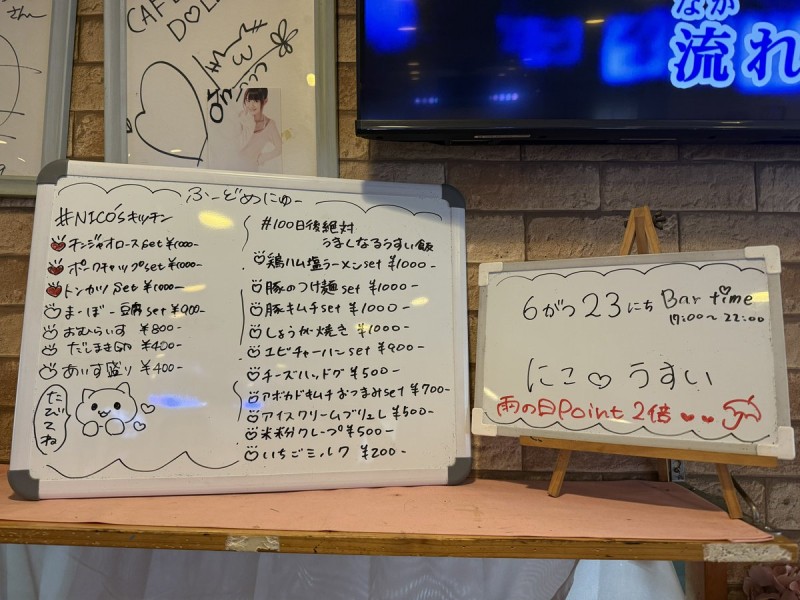 さん
CAFE
DOLL
なが
流れ
ふーどめにゅー
#NICO'Sキッチン
チンジャオロースset ¥1000-
ポークチャップset ¥1000-
トンカツset ¥1000-
まーぼー豆腐set ¥900-
おむらいす ¥800-
だしまき ¥400-
あいす盛り ¥400-
たべてね
#100日後絶対
うましなるうすい飯
鶏ハム塩ラーメンset ¥1000-
豚のつけ麺set ¥1000-
豚キムチset ¥1000-
しょうが焼き ¥1000-
エビチャーハンset ¥900-
チーズハッドグ ¥500-
アボカドキムチおつまみset ¥700-
アイスクリームブリュレ ¥500-
米粉クレープ ¥500-
いちごミルク ¥200-
6がつ23にち Bar time
17:00～22:00
にこ♡うすい
雨の日Point 2倍